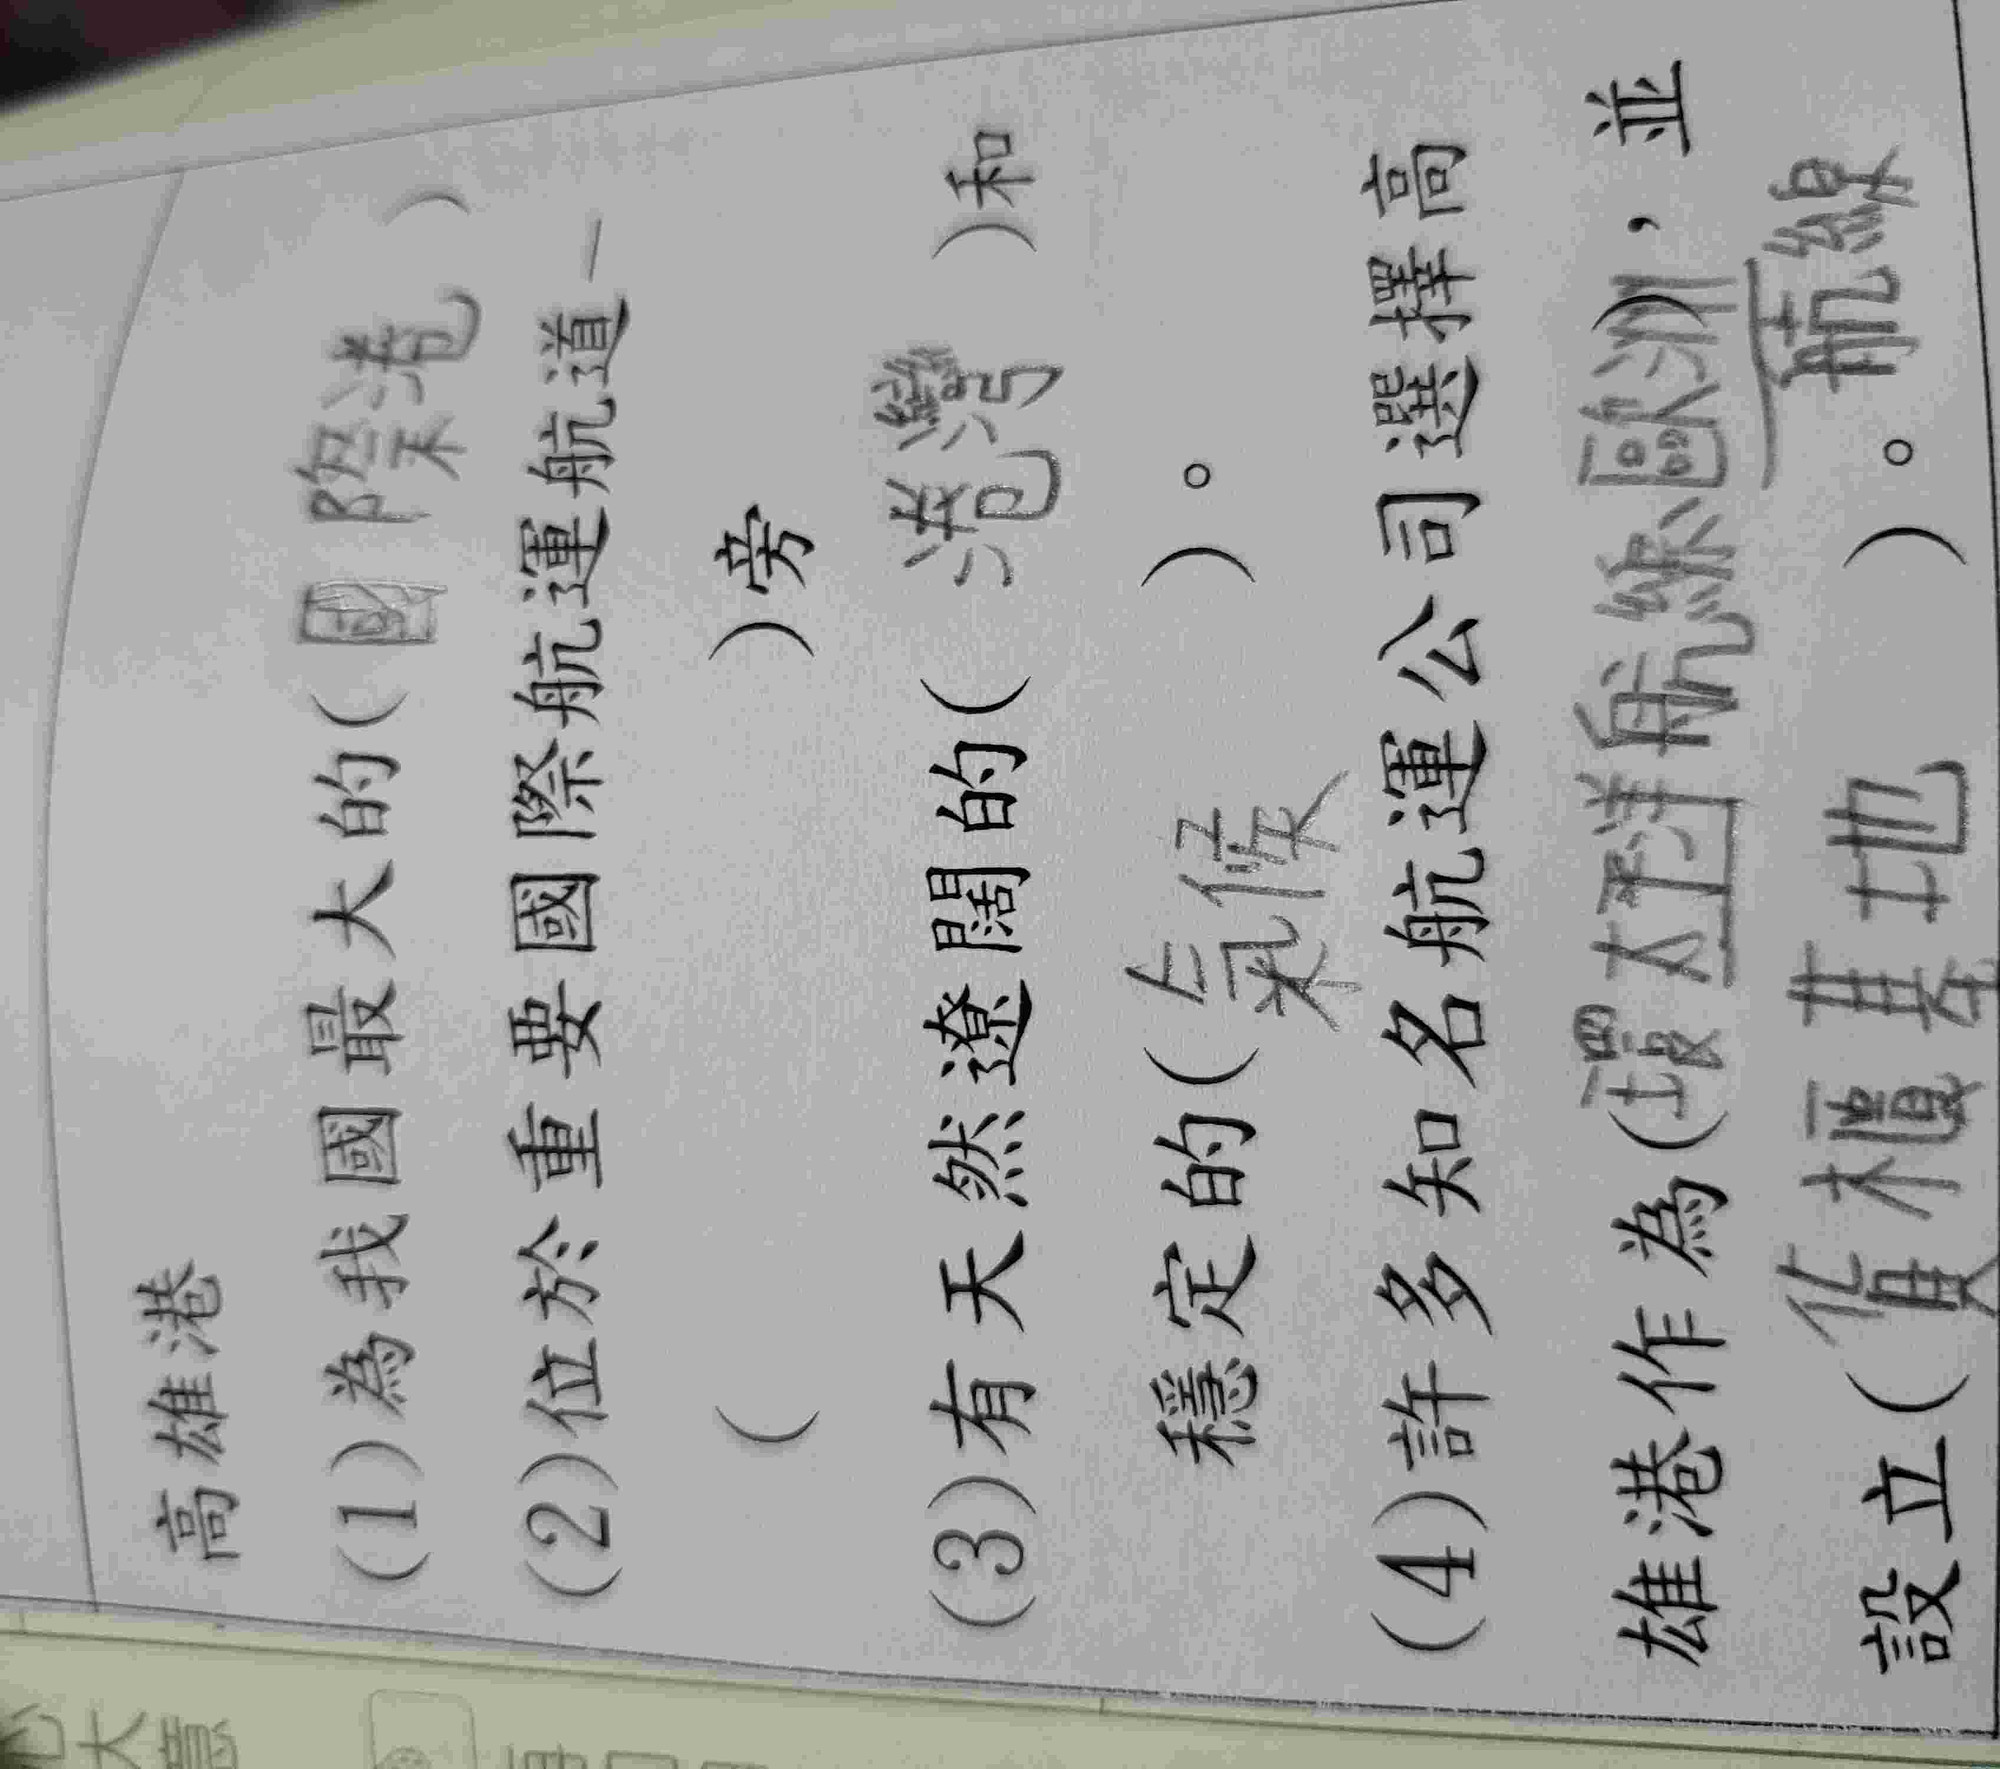 高雄港
(1)為我國最大的(國際港)
(2)位於重要國際航運航道—
( )旁
(3)有天然遼闊的(港灣)和
穩定的(氣候)。
(4)許多知名航運公司選擇高
雄港作為(環太平洋航線歐洲),並
航線
設立(貨櫃基地)。
大意